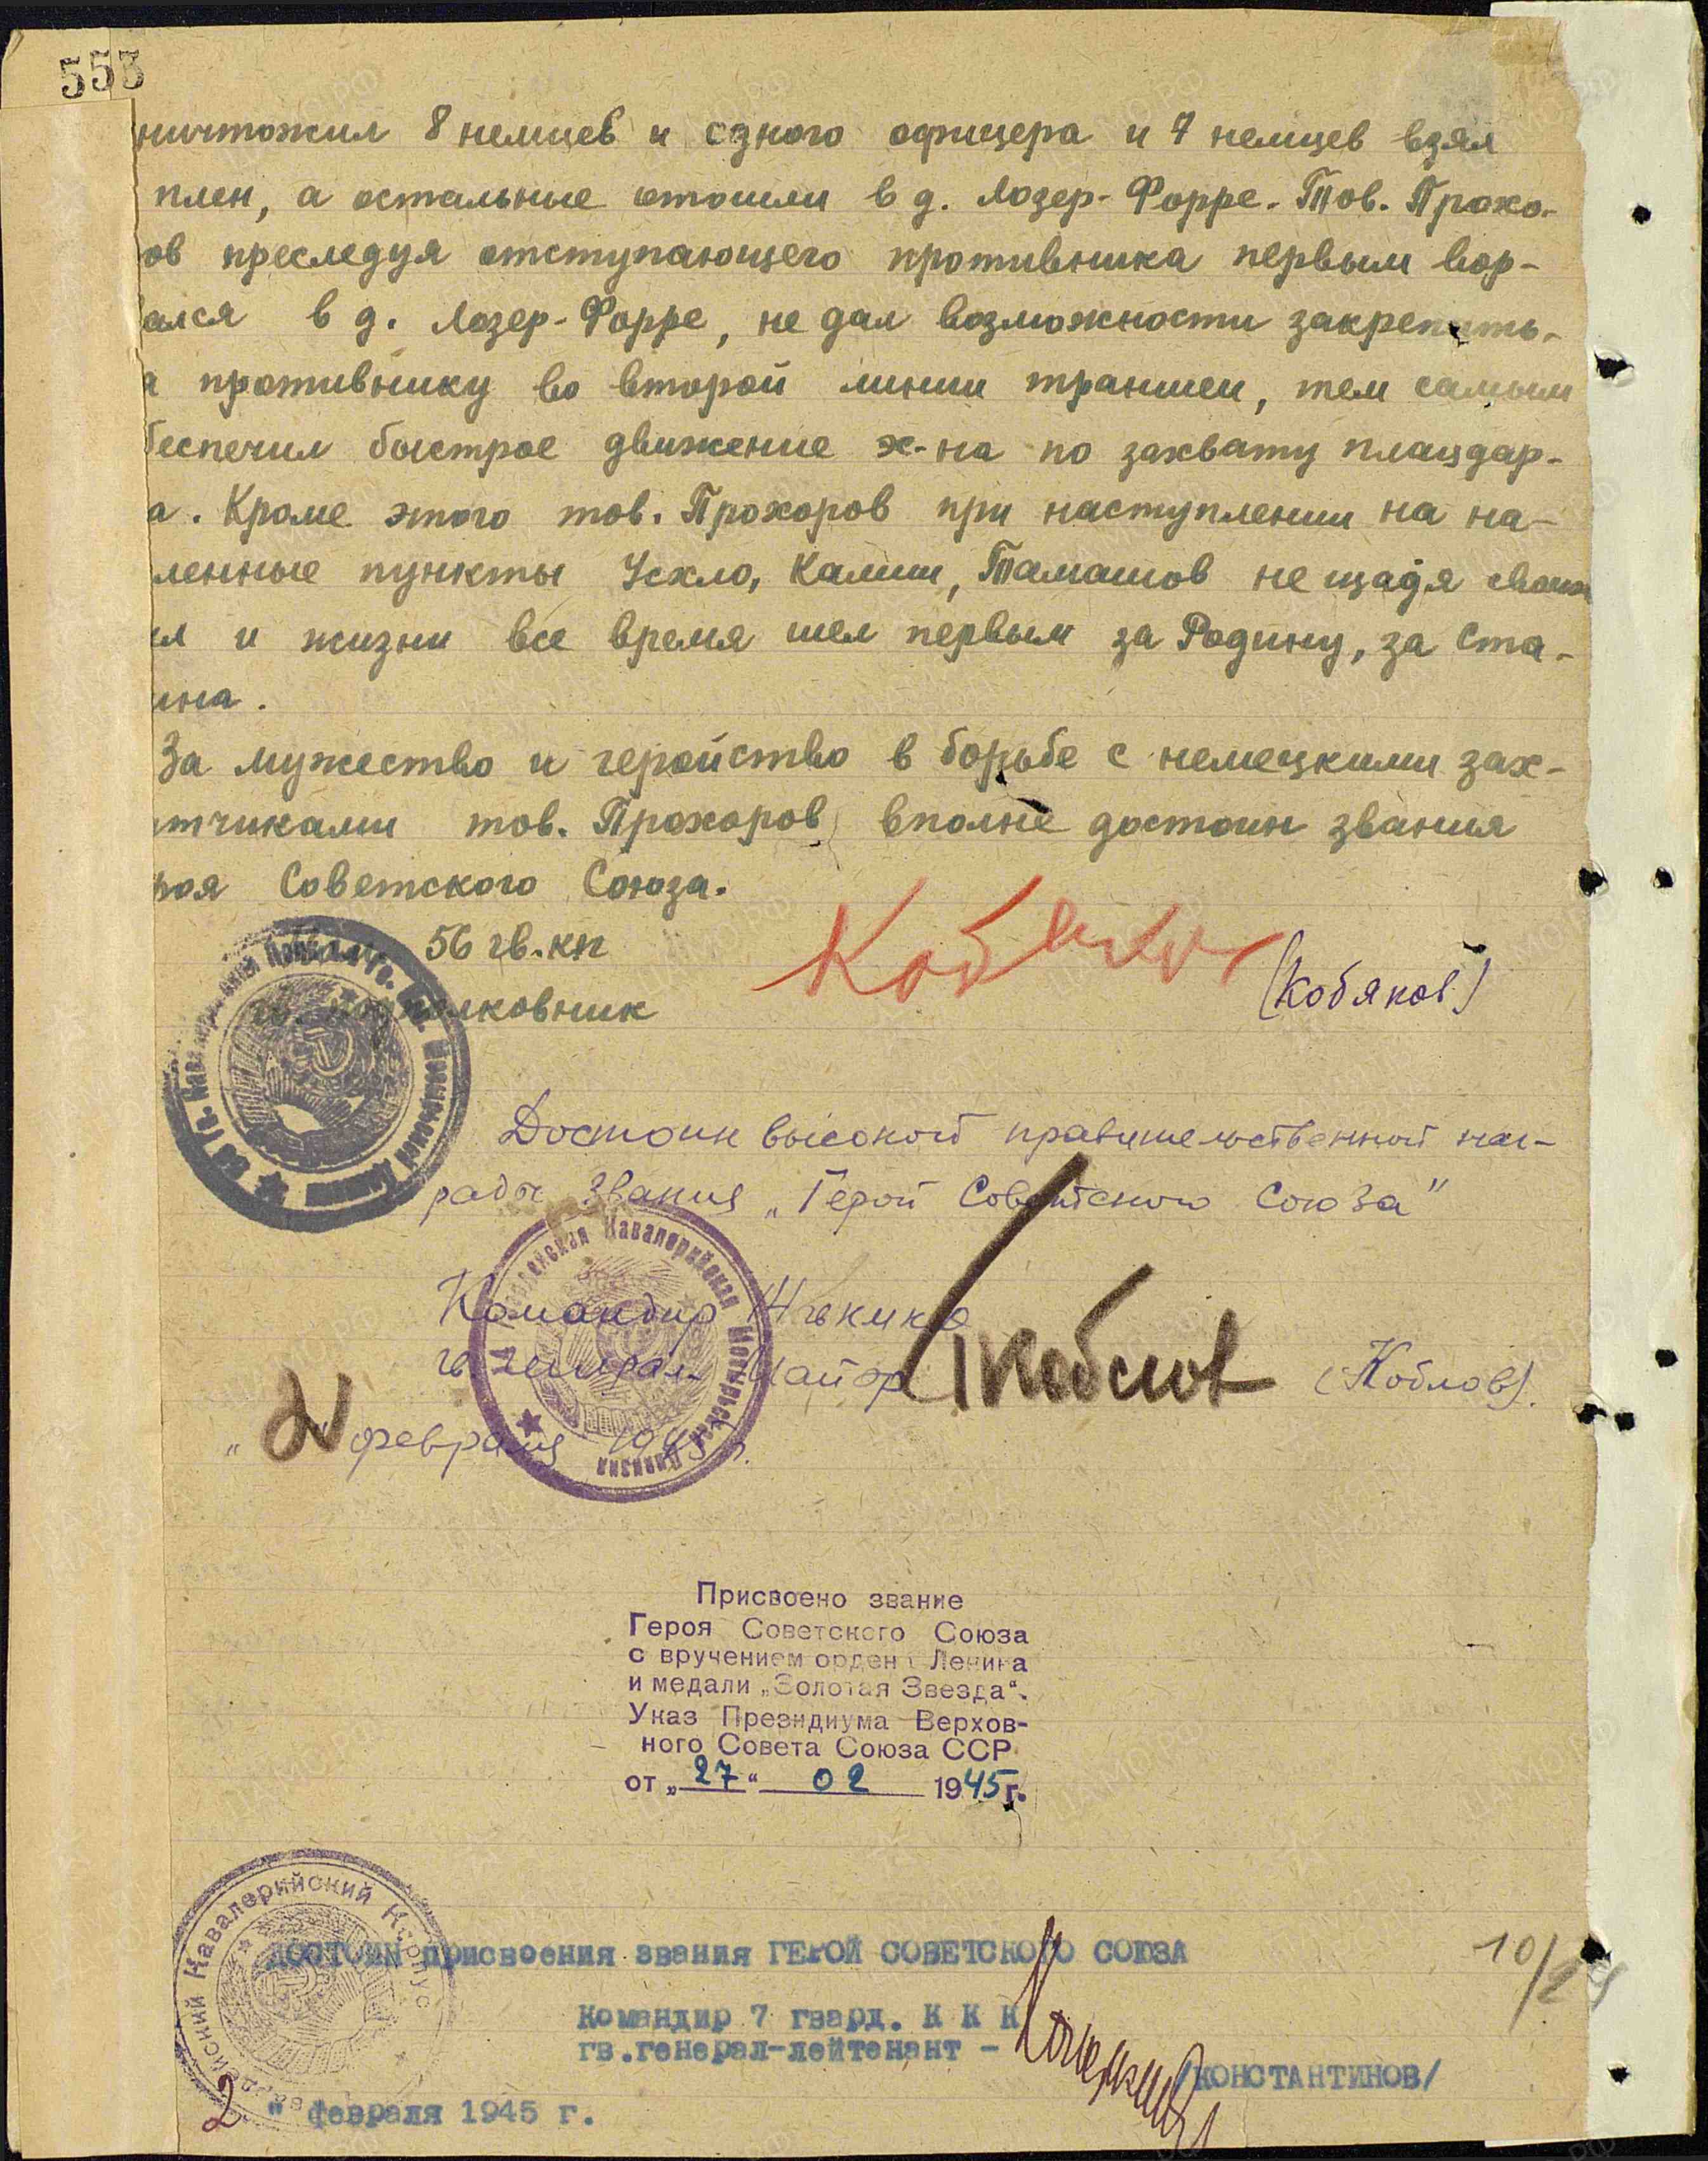 553
ничтожил 8 немцев и одного офицера и 7 немцев взял
плен, а остальные отошли в д. Лозер-Форре. Тов. Прохо-
ов преследуя отступающего противника первым вор-
ался в д. Лозер-Форре, не дал возможности закрепить-
я противнику во второй линии траншеи, тем самым
беспечил быстрое движение эс-на по захвату плацдар-
а. Кроме этого тов. Прохоров при наступлении на на-
ленные пункты Уехло, Калиш, Томашов не щадя своих
ил и жизни все время шел первым за Родину, за Ста-
ина.
За мужество и геройство в борьбе с немецкими зах-
атчиками тов. Прохоров вполне достоин звания
роя Советского Союза.
56 гв. кп
гв. подполковник (Кобяков)
Достоин высокой правительственной наг-
рады звания „Герой Советского Союза"
Командир 14 гв кмкд
гв генерал-майор Коблов (Коблов).
" февраля 1945 г.
Присвоено звание
Героя Советского Союза
с вручением орден Ленина
и медали „Золотая Звезда".
Указ Президиума Верхов-
ного Совета Союза ССР
от „27" 02 1945 г.
Кавалерийский Корпус
ДОСТОИН присвоения звания ГЕРОЙ СОВЕТСКОГО СОЮЗА
10/
Командир 7 гвард. К К К
гв.генерал-лейтенант -
/КОНСТАНТИНОВ/
2 " февраля 1945 г.